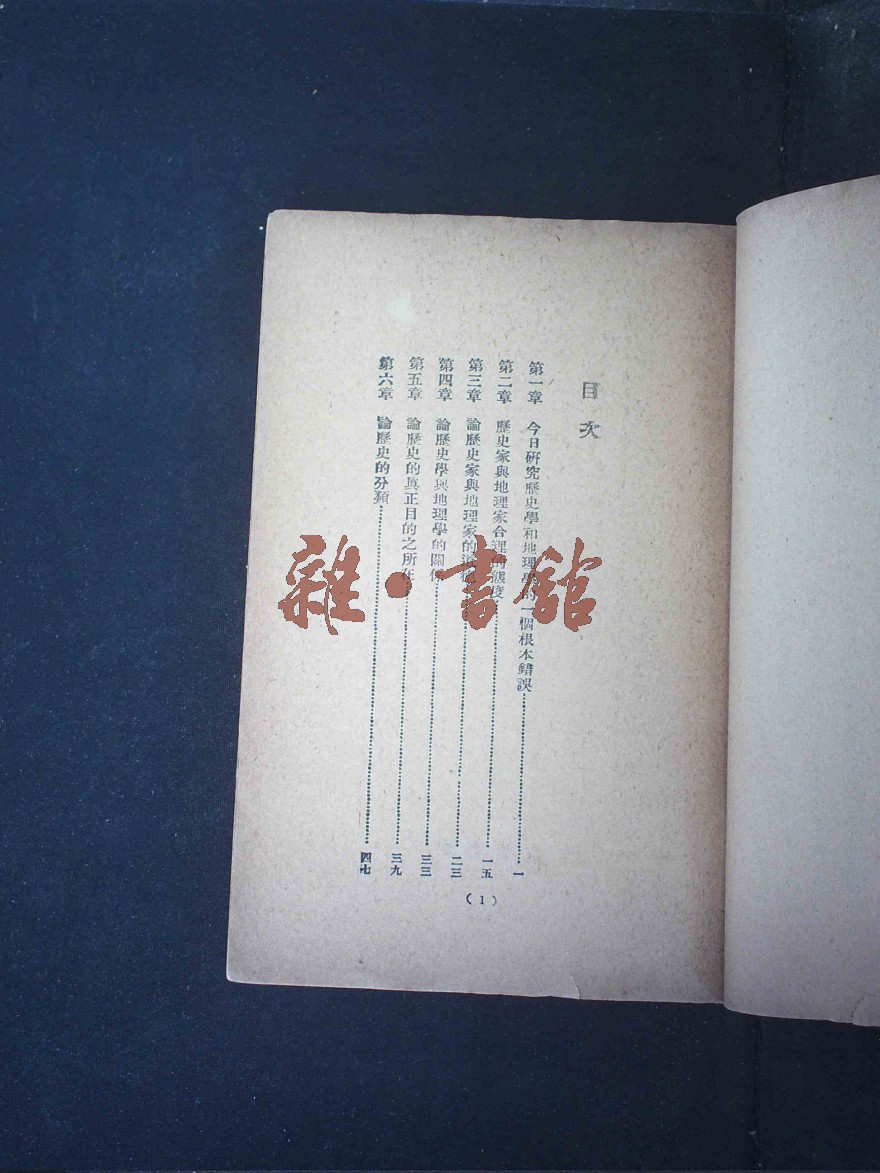 目次
第一章 今日研究歷史學和地理學的一個根本錯誤……一
第二章 歷史家與地理家合理的態度……一五
第三章 論歷史家與地理家的道德……二三
第四章 論歷史學與地理學的關係……三三
第五章 論歷史的眞正目的之所在……三九
第六章 論歷史的分類……四七
(1)
雜·書館